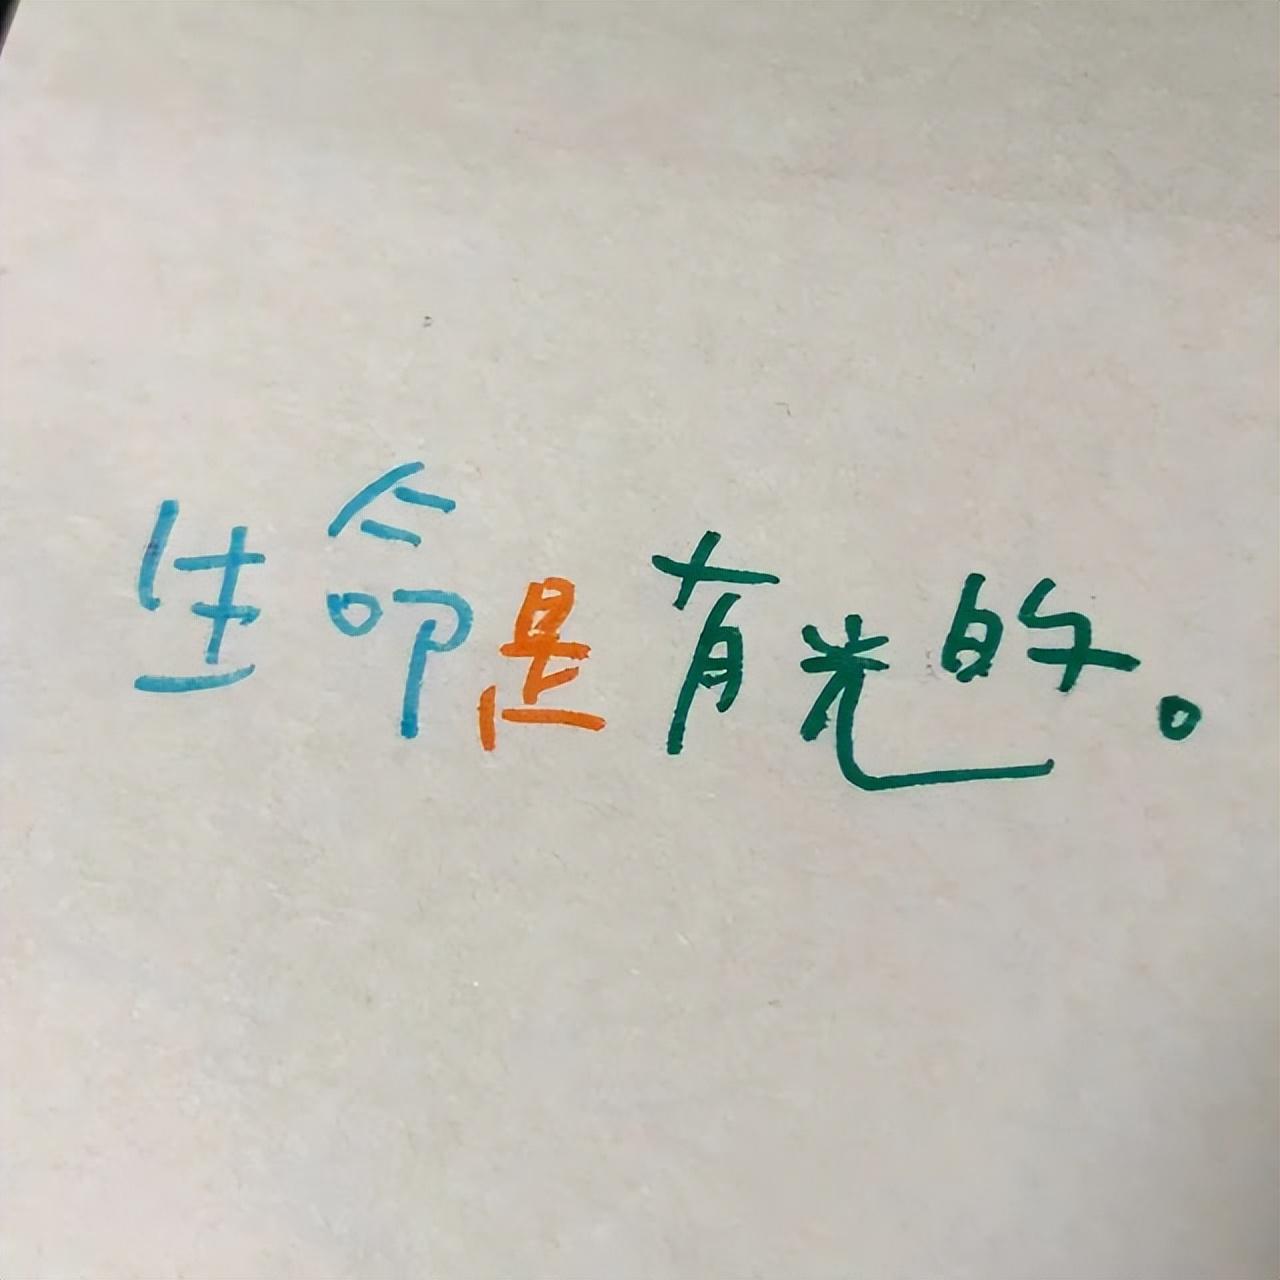 生命是有光的。